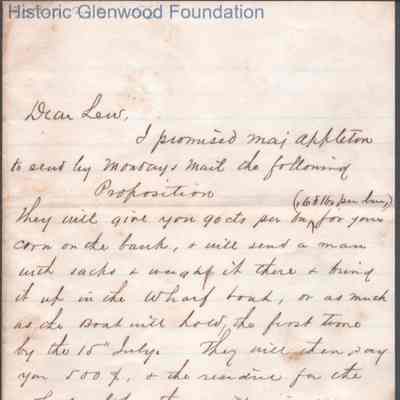 Historic Glenwood Foundation
Dear Lew,
I promised Maj Appleton
to send by Mondays Mail the following
Proposition
(68 lbs per bus,)
They will give you 90 cts per bus, for your
corn on the bank, & will send a man
with sacks & weigh it there & bring
it up in the Wharf boat, or as much
as the Boat will hold, the first time
by the 15th July. They will then pay
you 500 $, & the residue for the